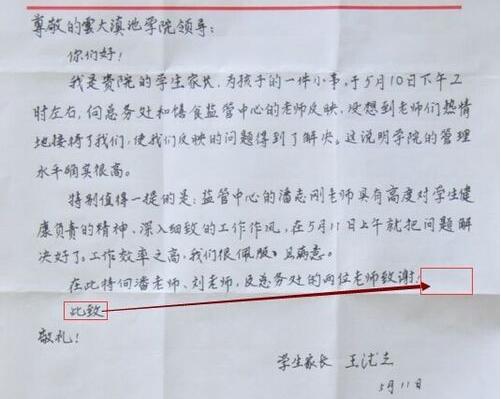 尊敬的雲大滇池学院领导:
你们好!
我是贵院的学生家长,为孩子的一件小事,于5月10日下午2
时左右,向总务处和膳食监管中心的老师反映,没想到老师们热情
地接待了我们,使我们反映的问题得到了解决,这说明学院的管理
水平确实很高。
特别值得一提的是:监管中心的潘志刚老师具有高度对学生健
康负责的精神、深入细致的工作作风,在5月11日上午就把问题解
决好了,工作效率之高,我们很佩服、且满意。
在此特向潘老师、刘老师,及总务处的两位老师致谢!
此致
敬礼!
学生家长 王
5月11日